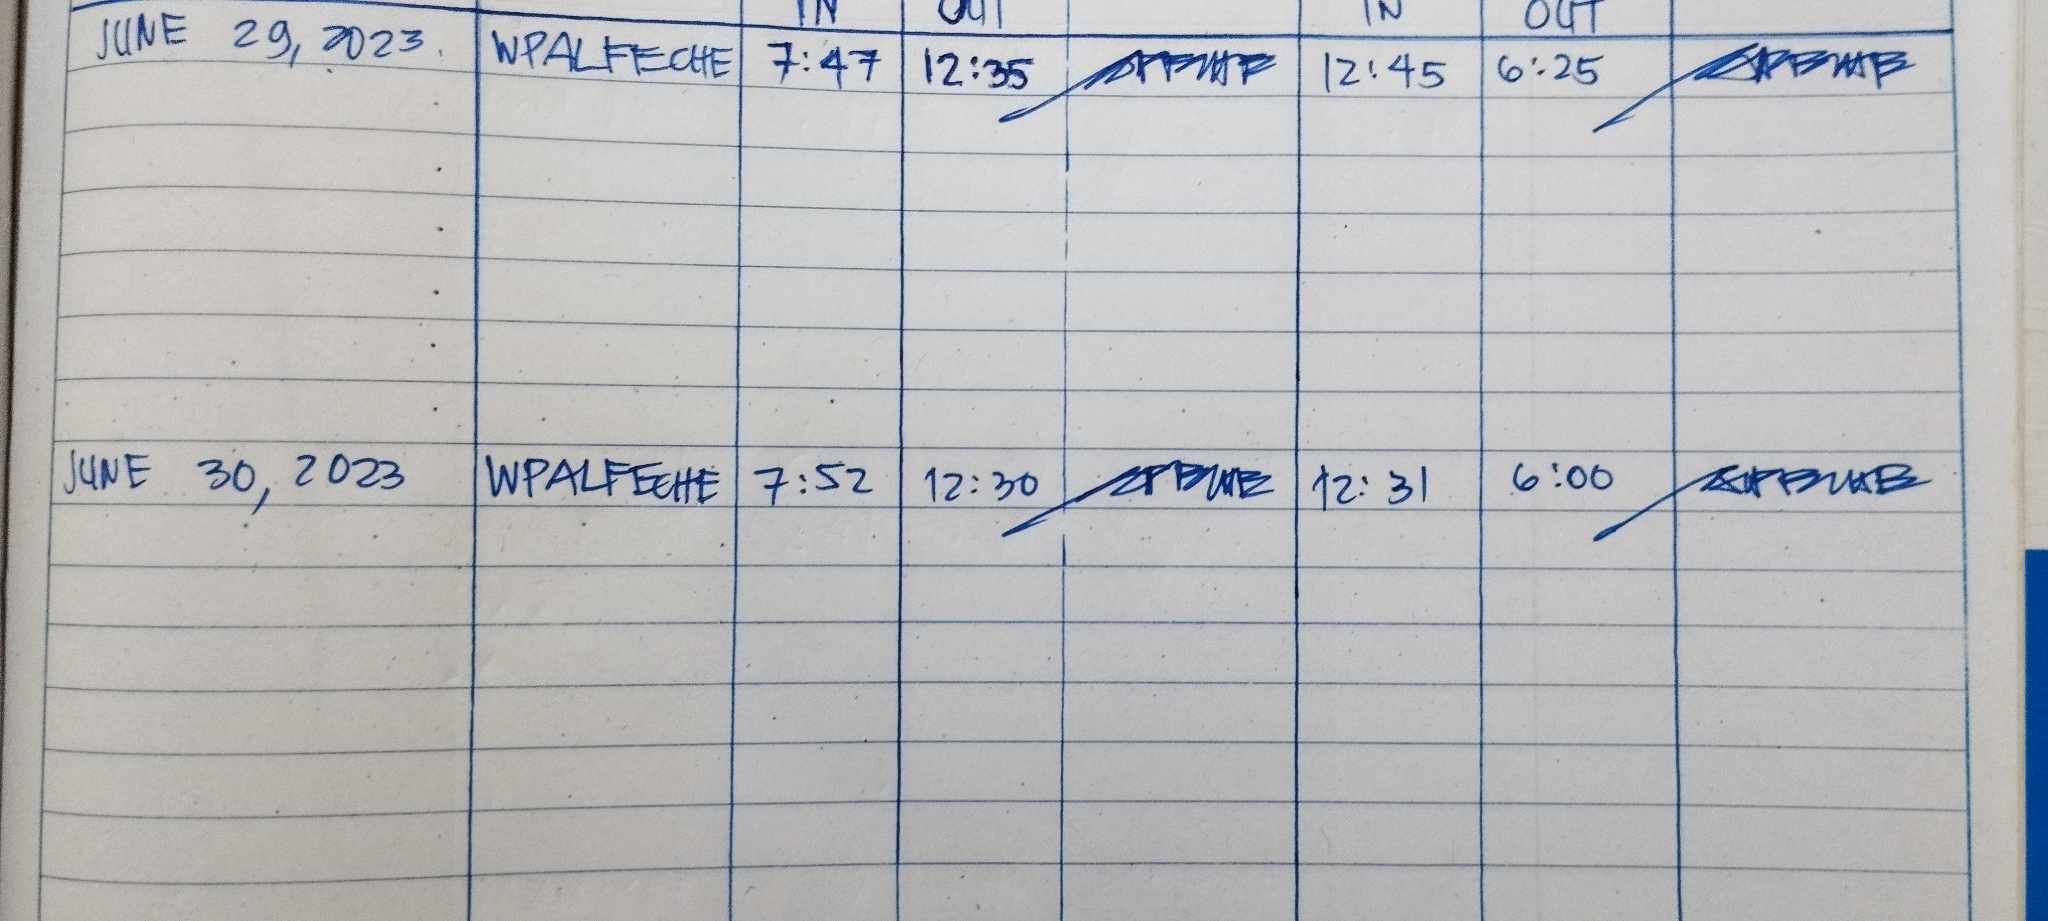 IN OUT IN OUT
JUNE 29, 2023. WPALFECHE 7:47 12:35 12:45 6:25
JUNE 30, 2023 WPALFECHE 7:52 12:30 12:31 6:00